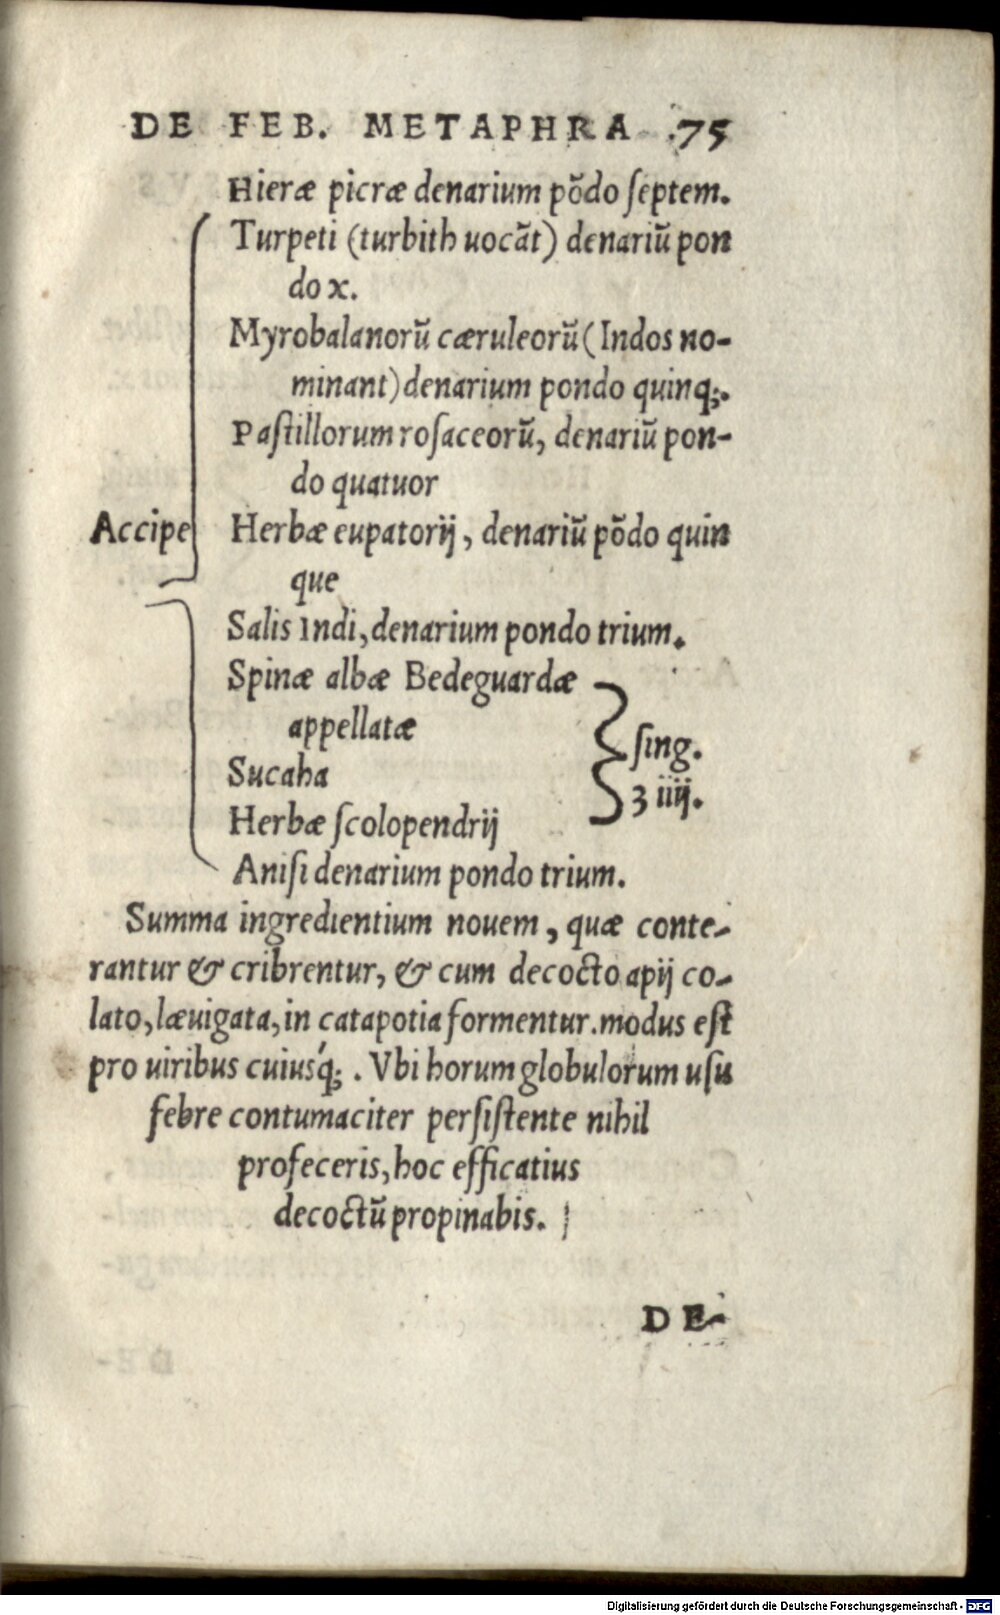 DE FEB. METAPHRA .75
Hieræ picræ denarium põdo ſeptem.
Turpeti (turbith uocãt) denariũ pon
do x.
Myrobalanorũ cæruleorũ (Indos no-
minant) denarium pondo quinq;.
Paſtillorum roſaceorũ, denariũ pon-
do quatuor
Accipe Herbæ eupatorij, denariũ põdo quin
que
Salis Indi, denarium pondo trium.
Spinæ albæ Bedeguardæ
appellatæ
ſing.
Sucaha
ʒ iiij.
Herbæ ſcolopendrij
Aniſi denarium pondo trium.
Summa ingredientium nouem, quæ conte-
rantur & cribrentur, & cum decocto apij co-
lato, læuigata, in catapotia formentur. modus eſt
pro uiribus cuiusq́;. Vbi horum globulorum uſu
febre contumaciter perſiſtente nihil
profeceris, hoc efficatius
decoctũ propinabis.
DE-
Digitalisierung gefördert durch die Deutsche Forschungsgemeinschaft - DFG